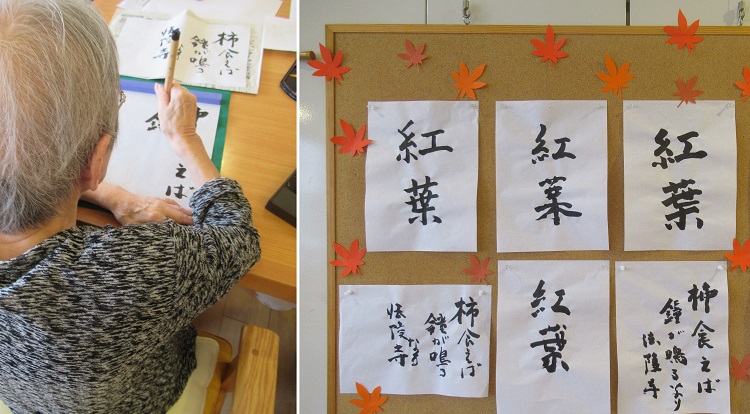 柿食えば
鐘が鳴る
法隆寺
えば
鐘
紅葉
紅葉
紅葉
柿食えば
鐘が鳴る
なり
法隆寺
紅葉
柿食えば
鐘が鳴るなり
法隆寺